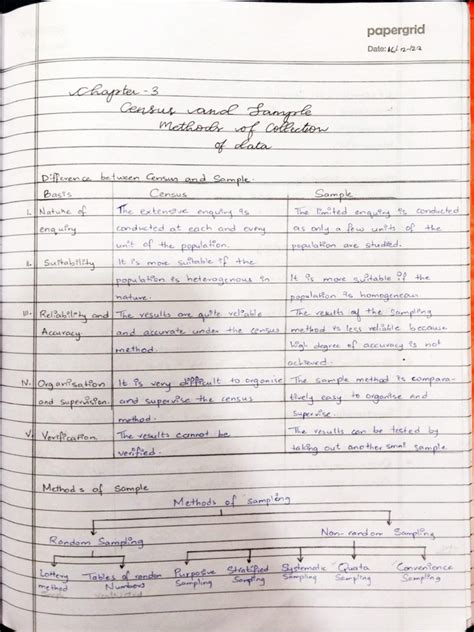 papergrid
Date:
Chapter - 3
Census and Sample
Methods of Collection
of data
Difference between Census and Sample.
Basis Census Sample
I. Nature of enquiry
The extensive enquiry is
conducted at each and every
unit of the population.
The limited enquiry is conducted
as only a few units of the
population are studied.
II. Suitability
It is more suitable if the
population is heterogenous in
nature.
It is more suitable if the
population is homogenean
III. Reliability and
Accuracy
The results are quite reliable
and accurate under the census
method.
The results of the sampling
method is less reliable because
high degree of accuracy is not
achieved.
IV. Organisation
and supervision
It is very difficult to organise
and supervise the census
method.
The sample method is compara-
tively easy to organise and
supervise.
V. Verification
The results cannot be
verified.
The results can be tested by
taking out another smal sample.
Methods of Sample
Methods of sampling
Random Sampling Non-random Sampling
Lottery
method
Tables of random
Numbers
Purposive
Sampling
Stratified
Sampling
Systematic
Sampling
Quata
Sampling
Convenience
Sampling